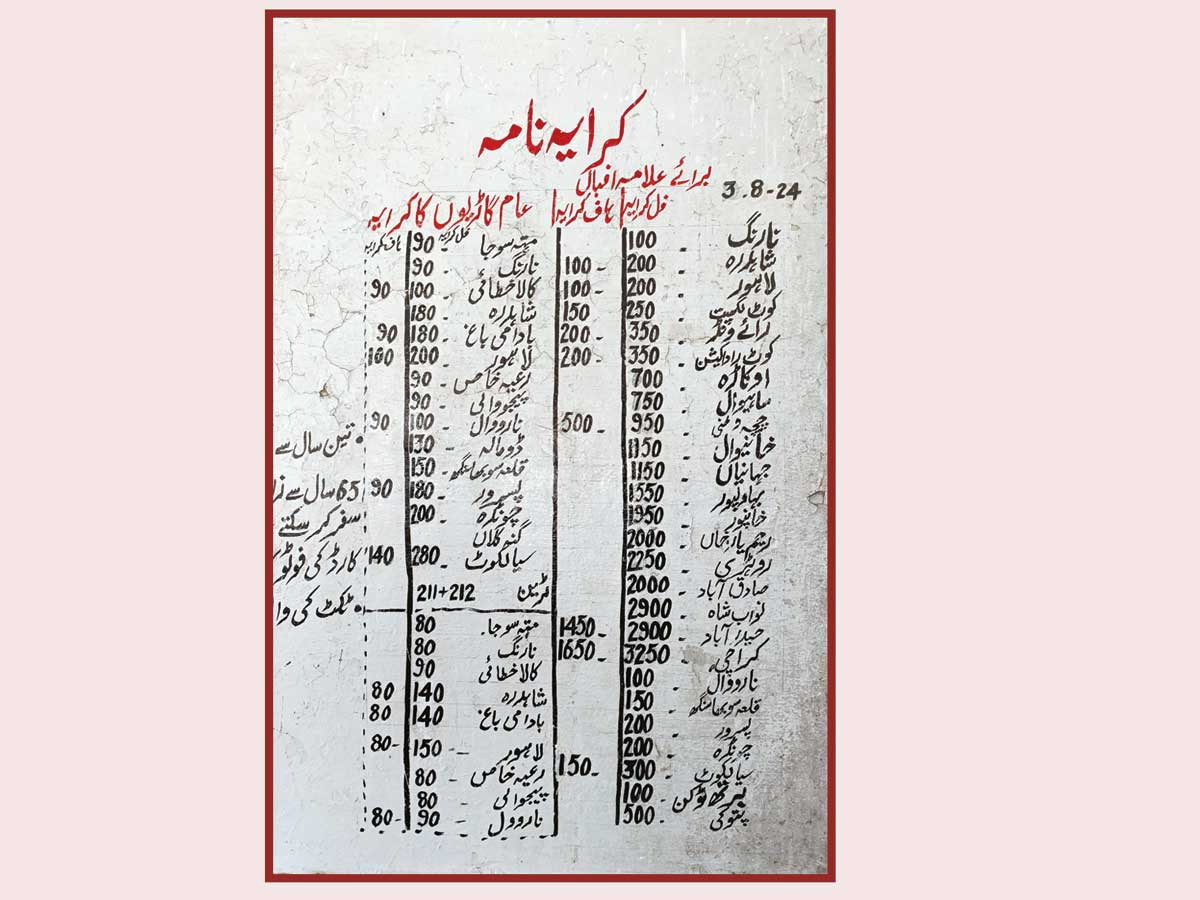 کرایہ نامہ
برائے علامہ اقبال
3.8-24
فل کرایہ
ہاف کرایہ
نارنگ - 100
شاہدرہ - 200 - 100
لاہور - 200 - 100
کوٹ لکھپت - 250 150
رائے ونڈ - 350 - 200
کوٹ رادھاکشن - 350 - 200
اوکاڑہ - 700
ساہیوال - 750
چیچہ وطنی - 950 - 500
خانیوال - 1150
جہانیاں - 1150
بہاولپور - 1550
خانپور - 1950
رحیم یارخاں - 2000
روہڑی - 2250
صادق آباد - 2000
نواب شاہ - 2900
حیدرآباد - 2900 - 1450
کراچی - 3250 - 1650
نارووال - 100
قلعہ سوبھاسنگھ - 150
پسرور - 200
چونڈہ - 200
سیالکوٹ - 300 - 150
برتھ ٹوکن - 100
پتوکی - 500
عام گاڑیوں کا کرایہ
مہتہ سوجا فل کرایہ 90 ہاف کرایہ
نارنگ - 90
کالاخطائی - 100 90
شاہدرہ - 180
بادامی باغ - 180 90
لاہور - 200 100
رعیہ خاص - 90
پیجووالی - 90
نارووال - 100 90
ڈومالہ - 130
قلعہ سوبھاسنگھ - 150
پسرور - 180 90
چونڈہ - 200
گنہ کلاں
سیالکوٹ - 280 140
ٹرین 211+212
مہتہ سوجا - 80
نارنگ 80
کالاخطائی 90
شاہدرہ 140 80
بادامی باغ 140 80
لاہور - 150 - 80
رعیہ خاص - 80
پیجووالی - 80
نارووال - 90 - 80
• تین سال سے
65 سال سے
سفر کر سکتے
کارڈ کی فوٹو
• ٹکٹ کی وا